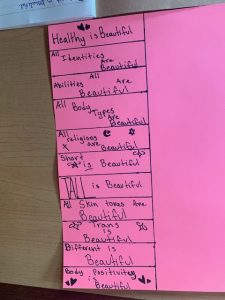 Healthy is Beautiful
All Identities
are Beautiful
All
Abilities Are
Beautiful
All Body
Types
are
Beautiful
All
religions are Beautiful
Short
is Beautiful
TALL is Beautiful
All Skin tones Are
Beautiful
Trans
is
Beautiful
Different is
Beautiful
Body Positivity
is
Beautiful